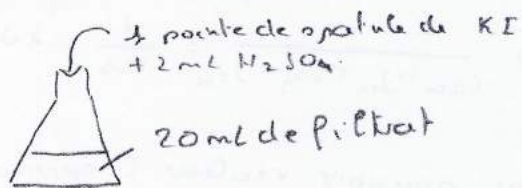 1 pointe de spatule de KI
+ 2 mL H2SO4.
20 mL de filtrat